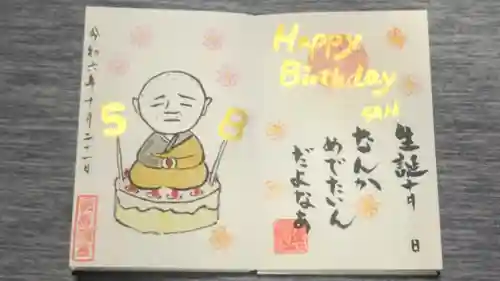 令和六年十月二十一日
5
8
Happy
Birthday
生誕
なんか
めでたいん
だよなあ